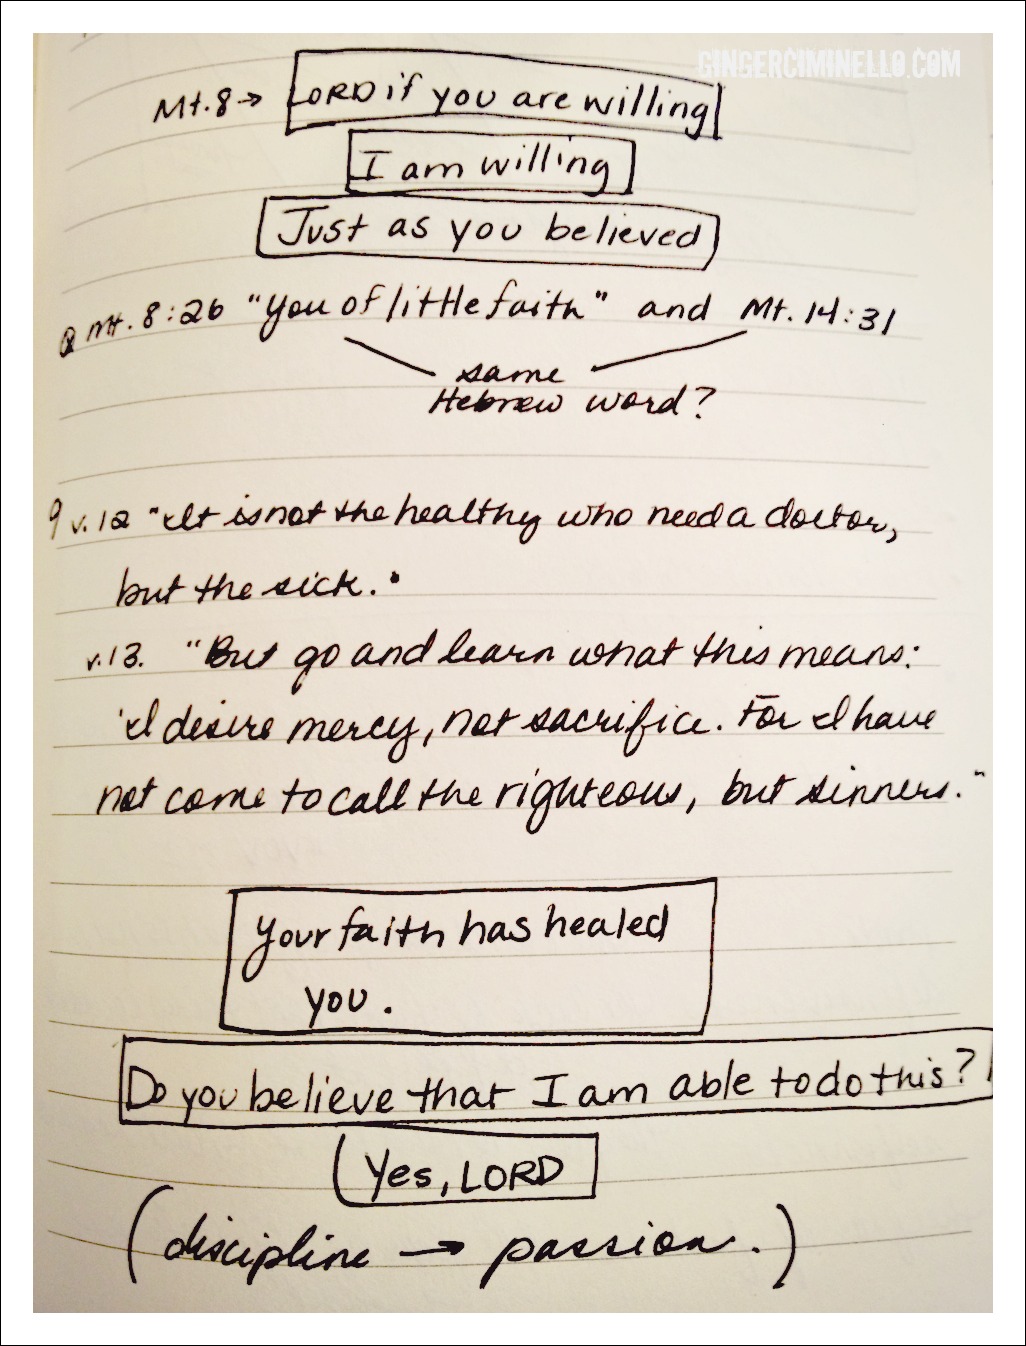 GINGERCIMINELLO.COM
Mt.8→ LORD if you are willing
I am willing
Just as you believed
Q Mt. 8:26 "You of little faith" and Mt. 14:31
same
Hebrew word?
9 v.12 "It is not the healthy who need a doctor,
but the sick."
v.13. "But go and learn what this means:
'I desire mercy, not sacrifice. For I have
not come to call the righteous, but sinners."
Your faith has healed
you.
Do you believe that I am able to do this?
Yes, LORD
(discipline → passion.)